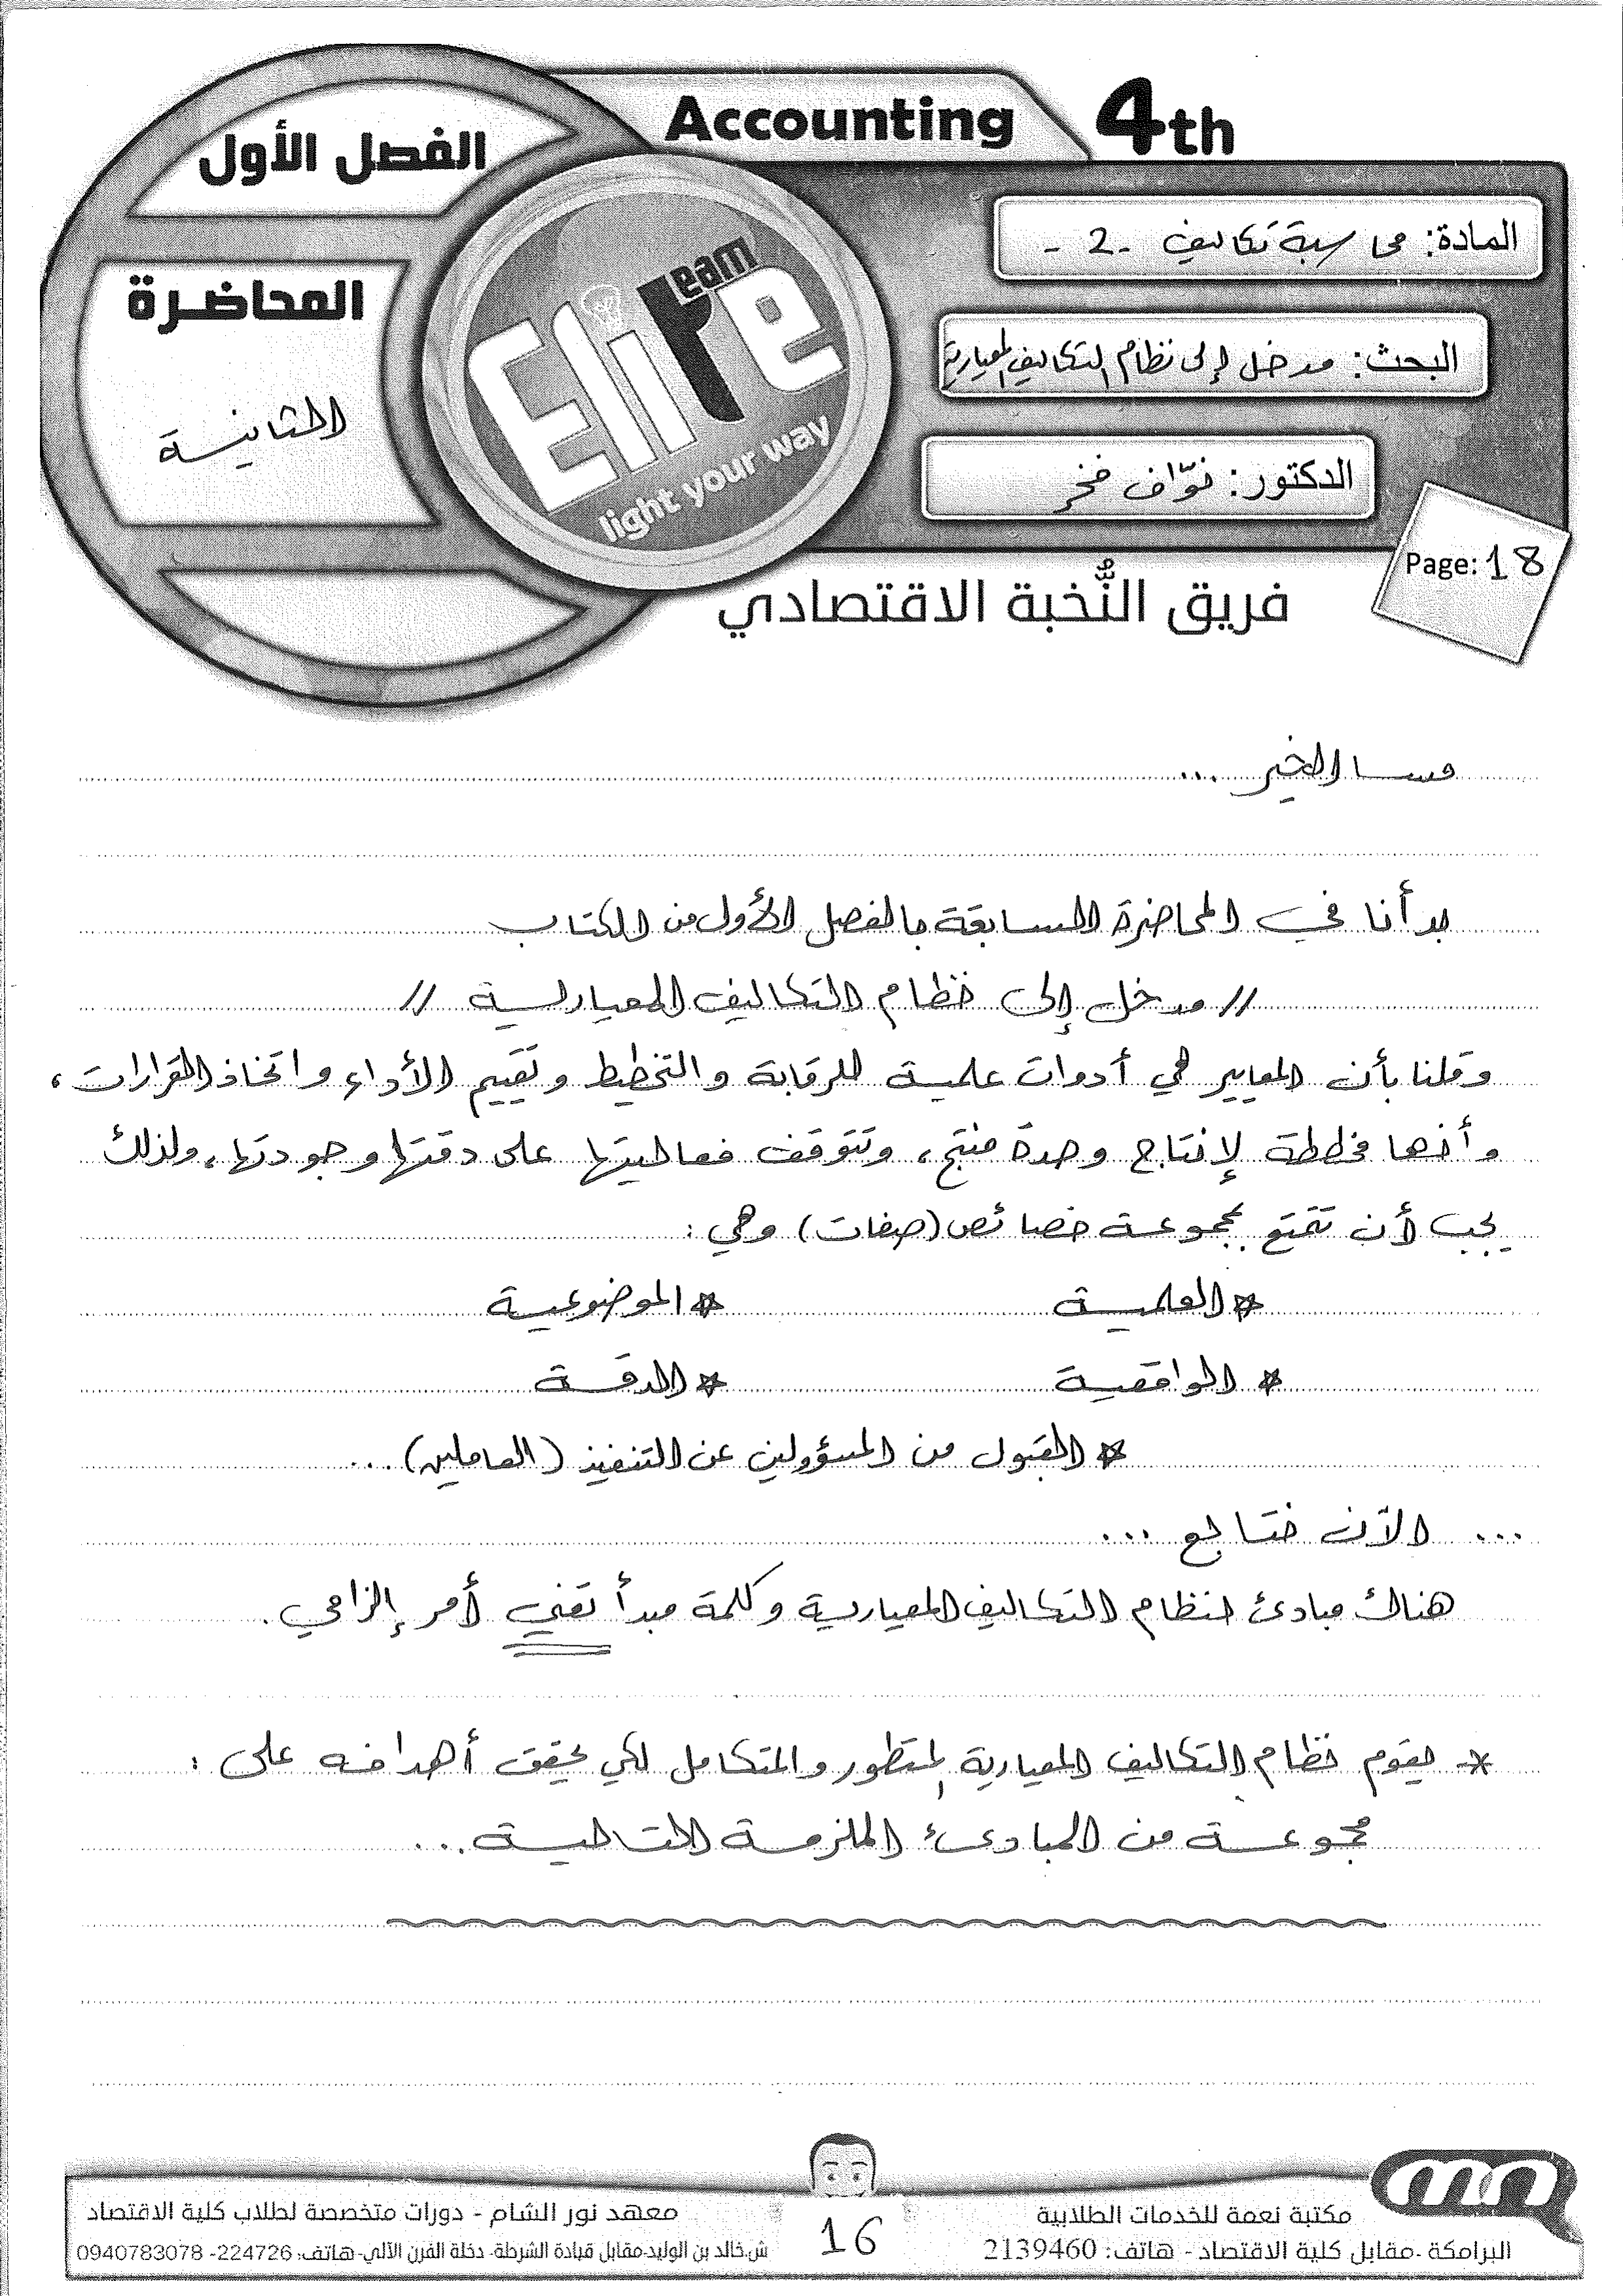 Accounting 4th
الفصل الأول
المادة: محاسبة تكاليف -2-
المحاضرة
الثانية
البحث: مدخل إلى نظام التكاليف المعيارية
الدكتور: نوّاف فخر
Elite Team
light your way
Page: 18
فريق النُّخبة الاقتصادي
مسا الخير ...
بدأنا في المحاضرة السابقة بالفصل الأول من الكتاب
// مدخل إلى نظام التكاليف المعيارية //
وقلنا بأن المعايير هي أدوات علمية للرقابة والتخطيط وتقييم الأداء واتخاذ القرارات،
وأنها مخططة لإنتاج وحدة منتج، وتتوقف فعاليتها على دقتها وجودتها، ولذلك
يجب أن تتمتع بمجموعة خصائص (صفات) وهي:
* العلمية * الموضوعية
* الواقعية * الدقة
* القبول من المسؤولين عن التنفيذ (العاملين) ...
... الآن نتابع ...
هناك مبادئ لنظام التكاليف المعيارية وكلمة مبدأ تعني أمر إلزامي.
* يقوم نظام التكاليف المعيارية المتطور والمتكامل لكي يحقق أهدافه على :
مجموعة من المبادئ الملزمة التالية ...
مكتبة نعمة للخدمات الطلابية
البرامكة -مقابل كلية الاقتصاد - هاتف: 2139460
16
معهد نور الشام - دورات متخصصة لطلاب كلية الاقتصاد
ش.خالد بن الوليد-مقابل قيادة الشرطة- دخلة الفرن الآلي-هاتف: 224726- 0940783078